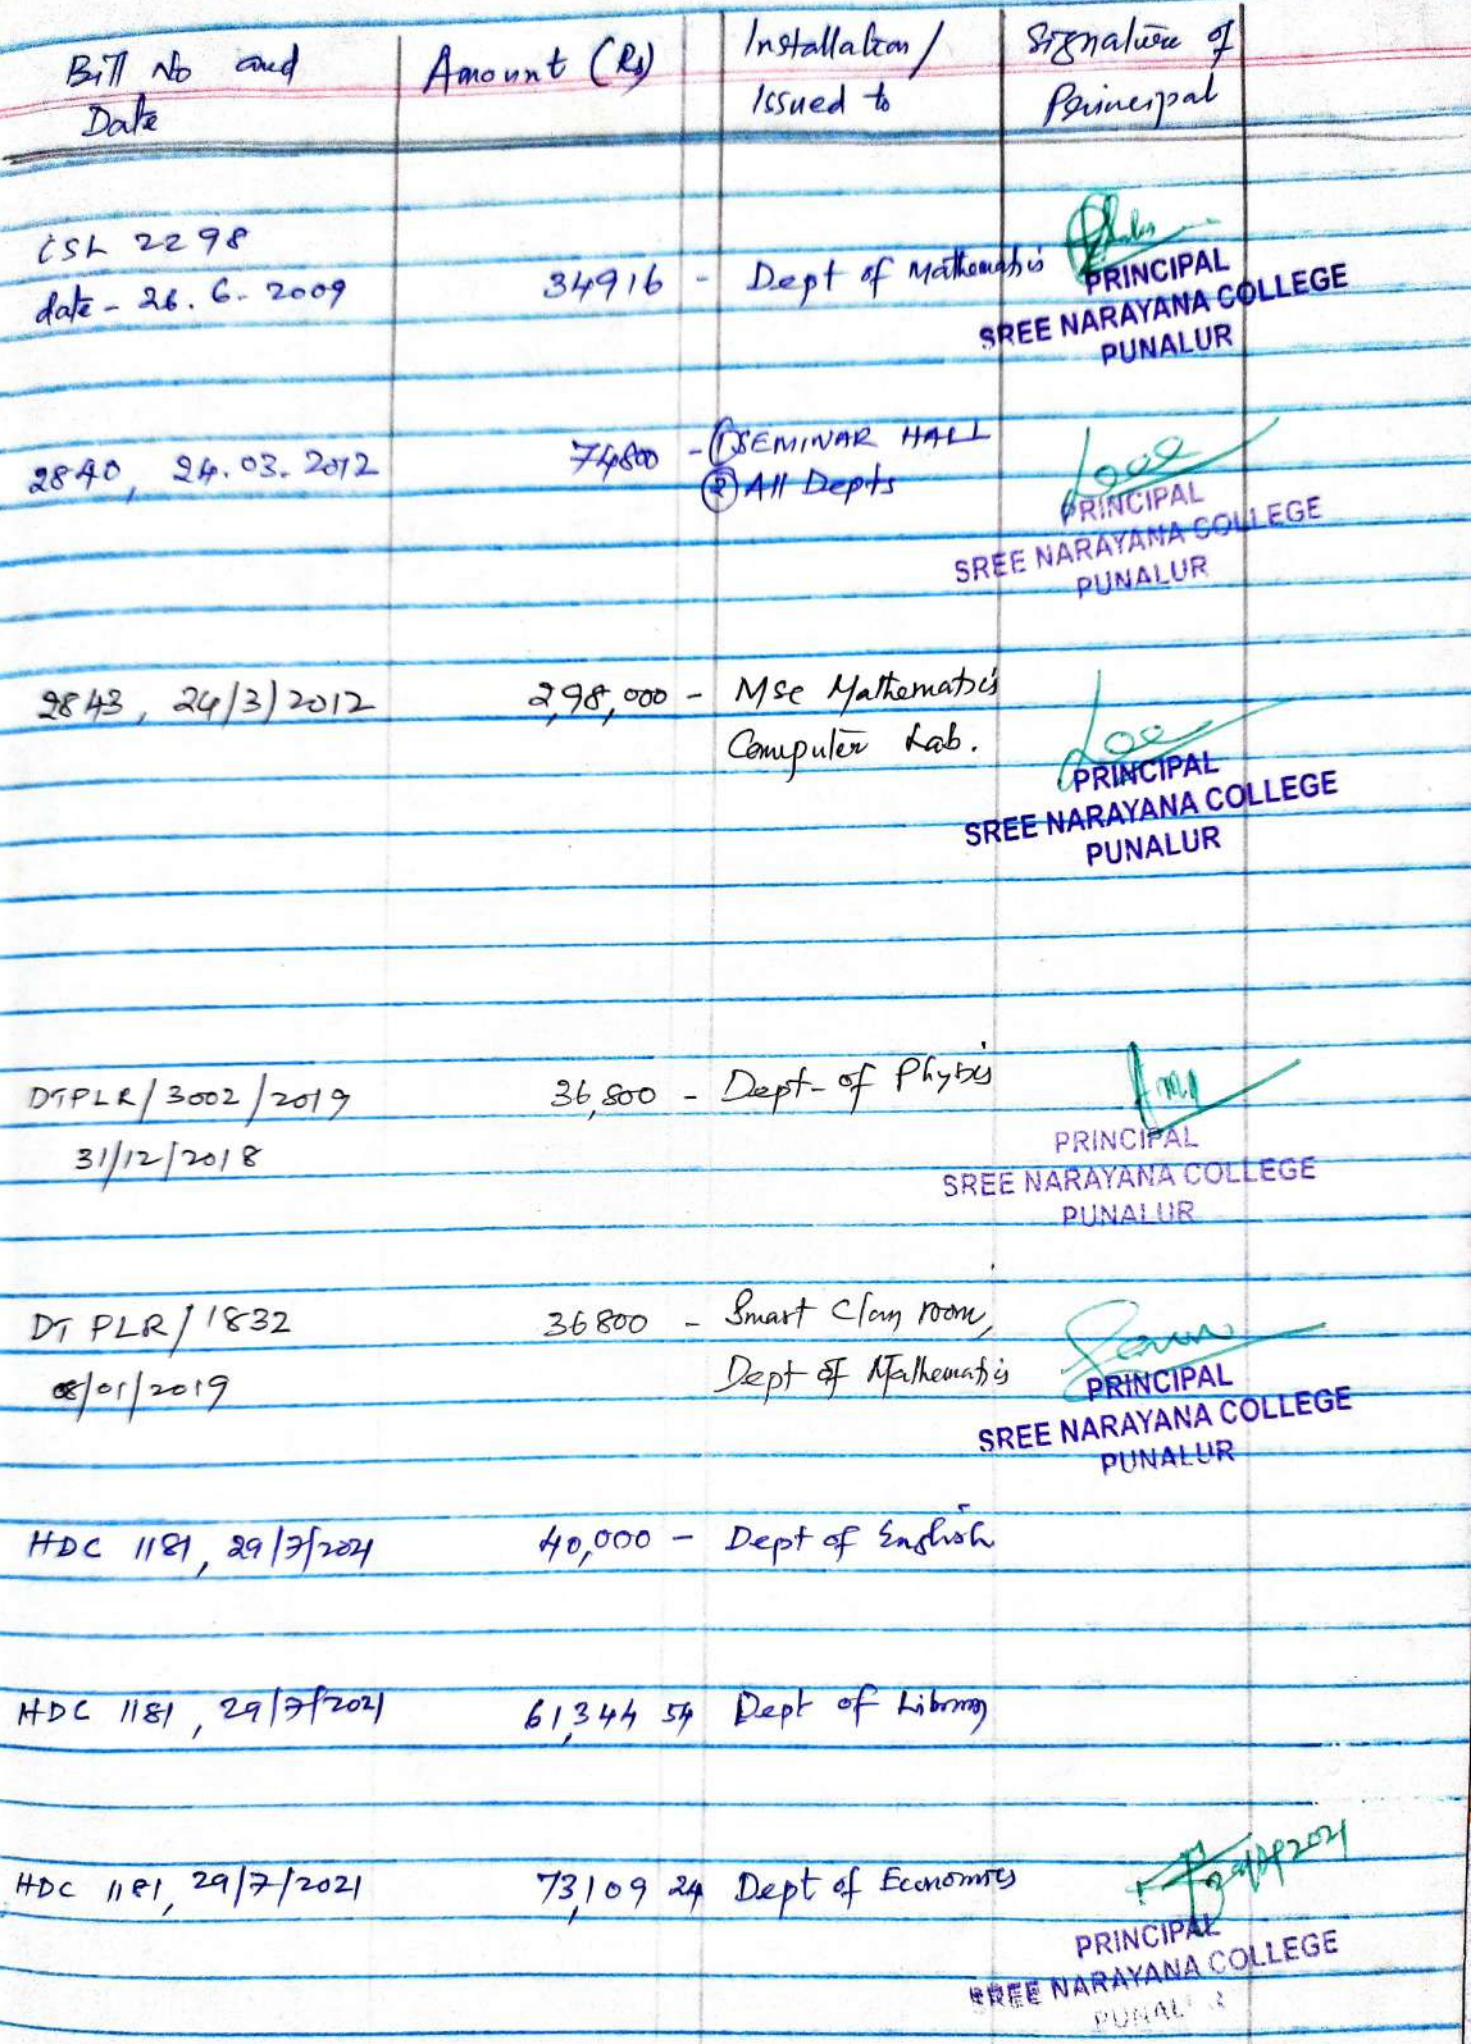 Bill No and Date
Amount (Rs)
Installation / Issued to
Signature of Principal
CSL 2298
date - 26. 6. 2009
34916 - Dept of Mathematics
PRINCIPAL
SREE NARAYANA COLLEGE
PUNALUR
2840, 24.03.2012
74800 - ① SEMINAR HALL
② All Depts
PRINCIPAL
SREE NARAYANA COLLEGE
PUNALUR
2843, 24/3/2012
2,98,000 - MSc Mathematics
Computer Lab.
PRINCIPAL
SREE NARAYANA COLLEGE
PUNALUR
DTPLR/3002/2019
36,800 - Dept- of Physics
31/12/2018
PRINCIPAL
SREE NARAYANA COLLEGE
PUNALUR
DT PLR/1832
36800 - Smart Class room,
/01/2019
Dept of Mathematics
PRINCIPAL
SREE NARAYANA COLLEGE
PUNALUR
HDC 1181, 29/7/2021
40,000 - Dept of English
HDC 1181, 29/7/2021
61,344 54 Dept of Library
HDC 1181, 29/7/2021
73,109 24 Dept of Economics
PRINCIPAL
SREE NARAYANA COLLEGE
PUNALUR